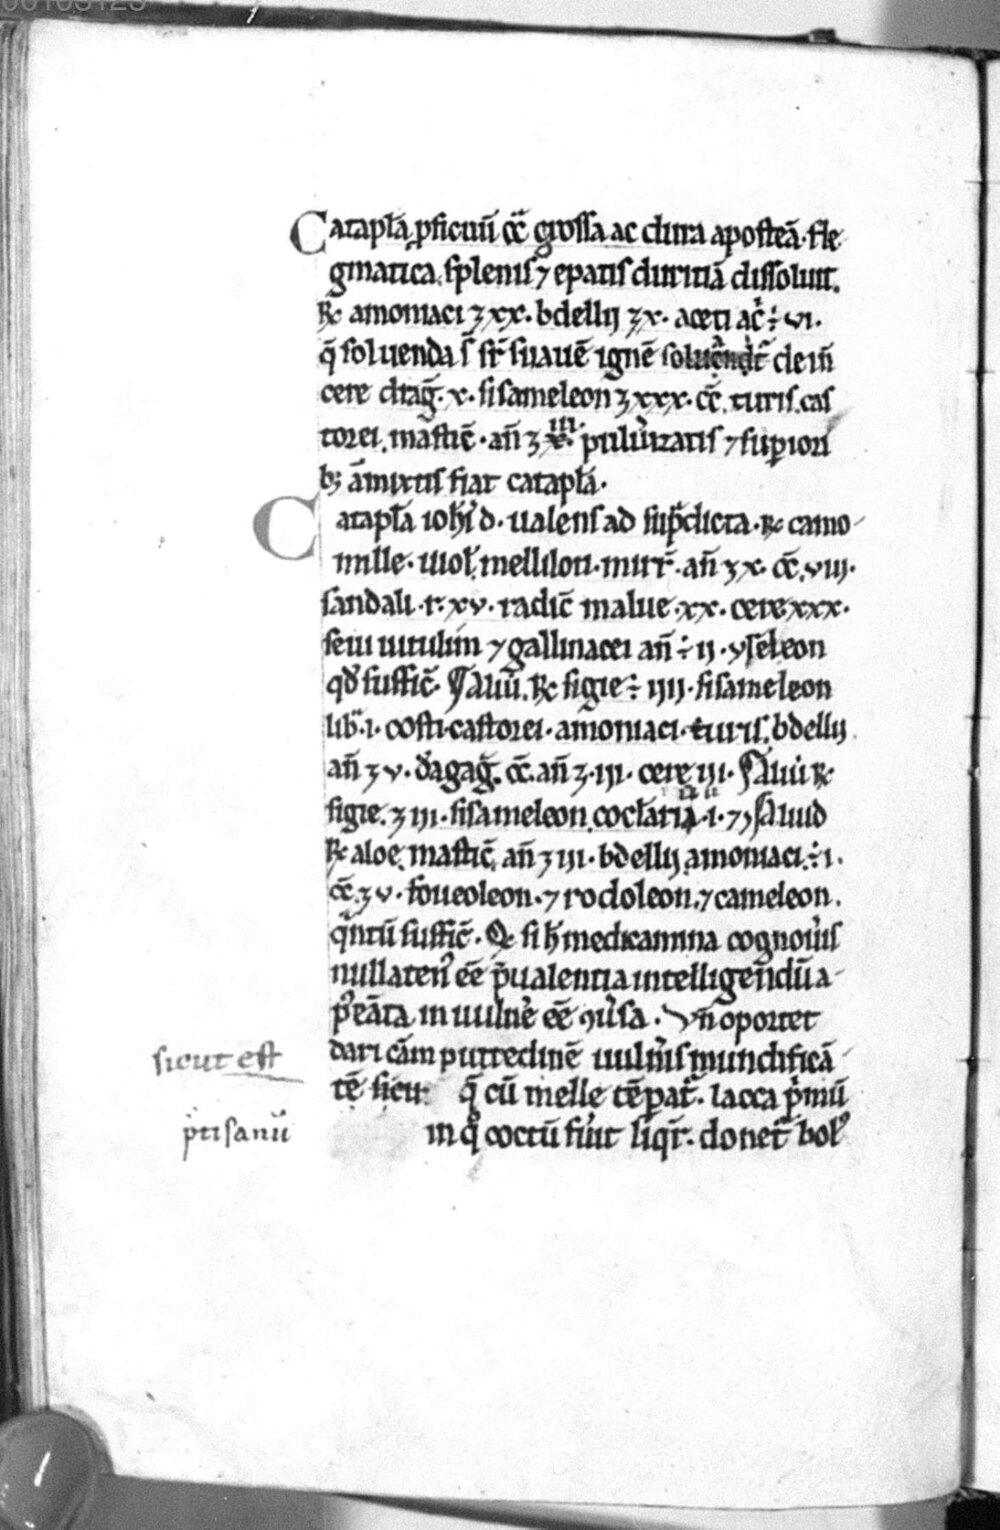 00103123
Catapla̅ ꝓficuu̅ cc̅ grossa ac dura apostea̅. fle
gmatica. splenis ⁊ epatis duritia̅ dissoluit.
℞ amoniaci ʒ xx. bdellij ʒ x. aceti ac̅ ÷ vi.
q̅ soluenda s̅ sr̅ suaue̅ igne̅ dein̅
cere drag̅. x. sisameleon ʒ xxx. cc̅. turis. cas
torei. mastic̅. an̅ ʒ iii puluizatis ⁊ suꝑiori
bꝫ a̅mixtis fiat catapla̅.
Catapla̅ ioh̅is d. ualens ad sup̅dicta. ℞ camo
mille. uiol̅. mellilon. mirr̅. an̅ ʒ x. cc̅. viii.
sandali. r. xv. radic̅ malue. xx. cere xxx.
seui uitulini ⁊ gallinacei an̅ ÷ ij. yseleon
qd̅ suffic̅. ¶Aliu̅. ℞ figie ÷ iiij. sisameleon
lib̅. i. costi. castorei. amoniaci. turis. bdellij
an̅ ʒ v. dagag̅. cc̅. an̅ ʒ. iii. cere iii. ¶Aliu̅ ℞
figie. ʒ iii. sisameleon. coclaria. i. ⁊ ¶Aliud
℞ aloe. mastic̅. an̅ ʒ iii. bdellij. amoniaci. ÷ i.
cc̅. ʒ v. foueoleon. ⁊ rodoleon. ⁊ cameleon.
q̅ntu̅ suffic̅. Q si h̅ medicamina cognou̅is
nullaten᷒ ee̅ p̅ualentia intelligen̅du̅ a
p᷒ea̅ta in uulne̅ ee̅ ꝯu̅sa. Vn̅ oportet
dari ca̅m putredine̅ uuln̅is mundifica̅
te̅ sicu q̅ cu̅ melle te̅ꝑat̅. lacca p̅mu̅
in q̊ coctu̅ fu̅it siqr̅. donet̅ bol᷒
sicut est
ptisanu̅